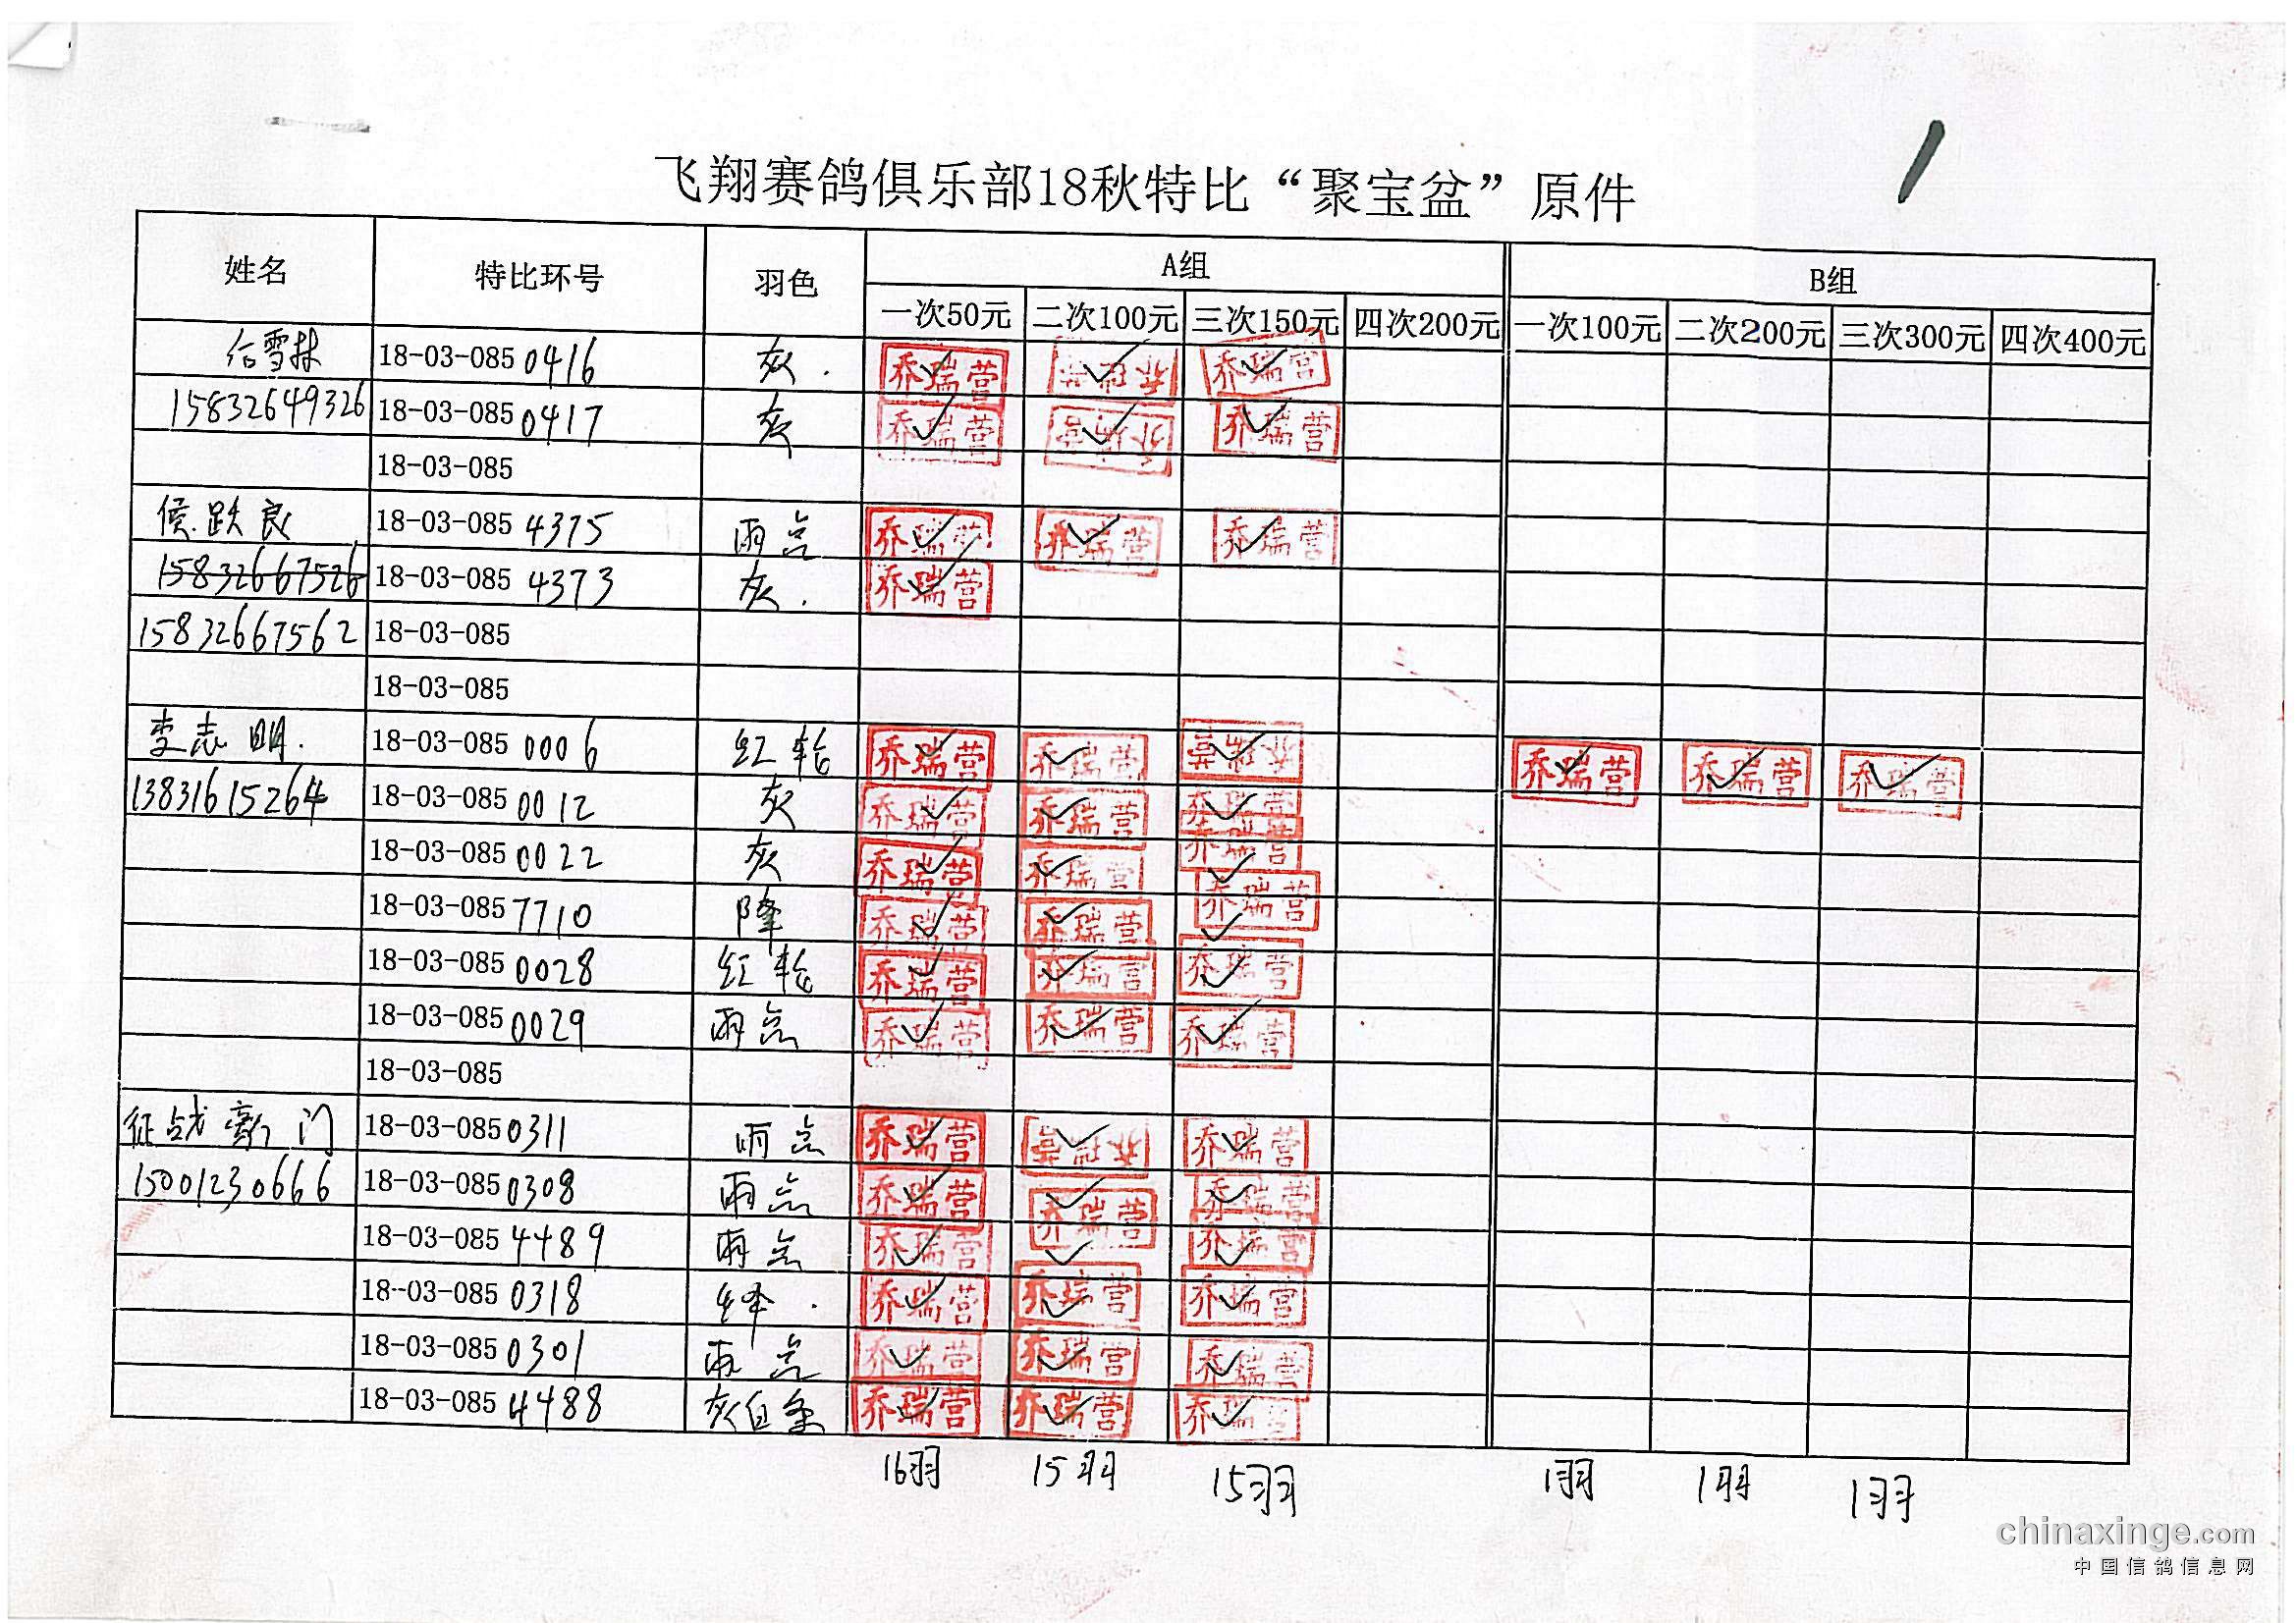 1
飞翔赛鸽俱乐部18秋特比“聚宝盆”原件
姓名 特比环号 羽色 A组 B组
一次50元 二次100元 三次150元 四次200元 一次100元 二次200元 三次300元 四次400元
信雪林 18-03-085 0416 灰 乔瑞营 乔瑞营 乔瑞营
15832649326 18-03-085 0417 灰 乔瑞营 乔瑞营 乔瑞营
18-03-085
侯跃良 18-03-085 4375 雨点 乔瑞营 乔瑞营 乔瑞营
15832667526 18-03-085 4373 灰 乔瑞营
15832667562 18-03-085
18-03-085
李志明 18-03-085 0006 红轮 乔瑞营 乔瑞营 乔瑞营 乔瑞营 乔瑞营 乔瑞营
13831615264 18-03-085 0012 灰 乔瑞营 乔瑞营 乔瑞营
18-03-085 0022 灰 乔瑞营 乔瑞营 乔瑞营
18-03-085 7710 降 乔瑞营 乔瑞营 乔瑞营
18-03-085 0028 红轮 乔瑞营 乔瑞营 乔瑞营
18-03-085 0029 雨点 乔瑞营 乔瑞营 乔瑞营
18-03-085
征战豪门 18-03-085 0311 雨点 乔瑞营 乔瑞营 乔瑞营
15001230666 18-03-085 0308 雨点 乔瑞营 乔瑞营 乔瑞营
18-03-085 4489 雨点 乔瑞营 乔瑞营 乔瑞营
18-03-085 0318 绛 乔瑞营 乔瑞营 乔瑞营
18-03-085 0301 雨点 乔瑞营 乔瑞营 乔瑞营
18-03-085 4488 灰白条 乔瑞营 乔瑞营 乔瑞营
16羽 15羽 15羽 1羽 1羽 1羽
chinaxinge.com
中国信鸽信息网